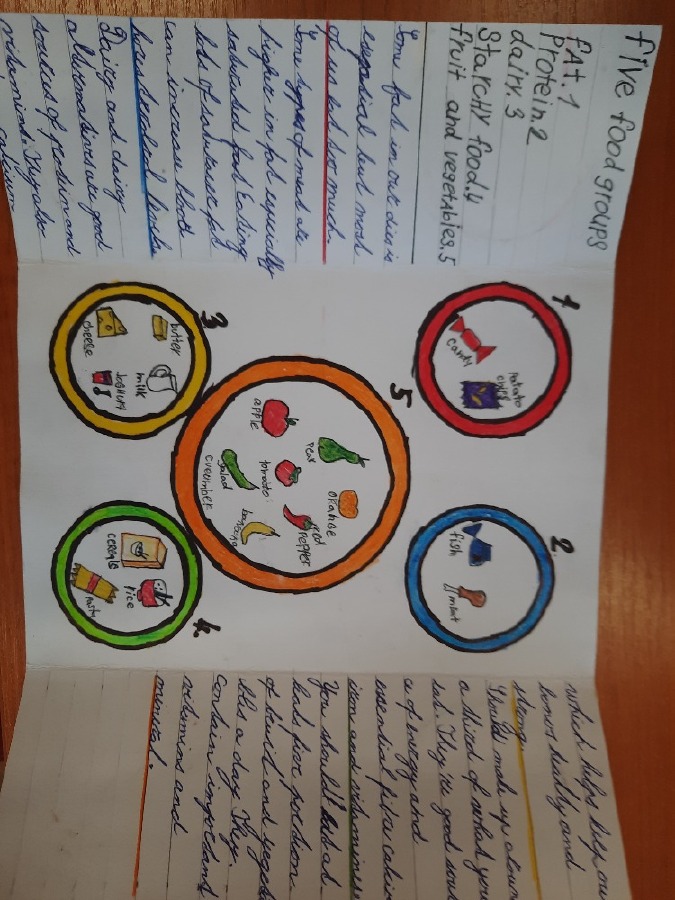 five food groups
fAt. 1
Protein 2
dairy. 3
Starchy food. 4
fruit and vegetables. 5
Some fat in our diet is
essential but most
of us eat too much.
Some types of meat are
higher in fat especially
saturated fat Eating
lots of saturated fat
can increase blood
levels.
Dairy and dairy
alternatives are good
sources of protein and
vitamins. They also
calcium
1
candy
potato
chips
2
fish
meat
3
butter
milk
cheese
4
rice
pasta
5
pear
orange
red
pepper
apple
tomato
banana
salad
cucumber
which helps keep our
bones healthy and
strong.
Should make up about
a third of what you
eat. They're good sour
ce of energy and
essential
iron and vitamines
You should eat at
least five portion
of fruit and veget
bles a day. They
contain important
vitamins and
mineral.